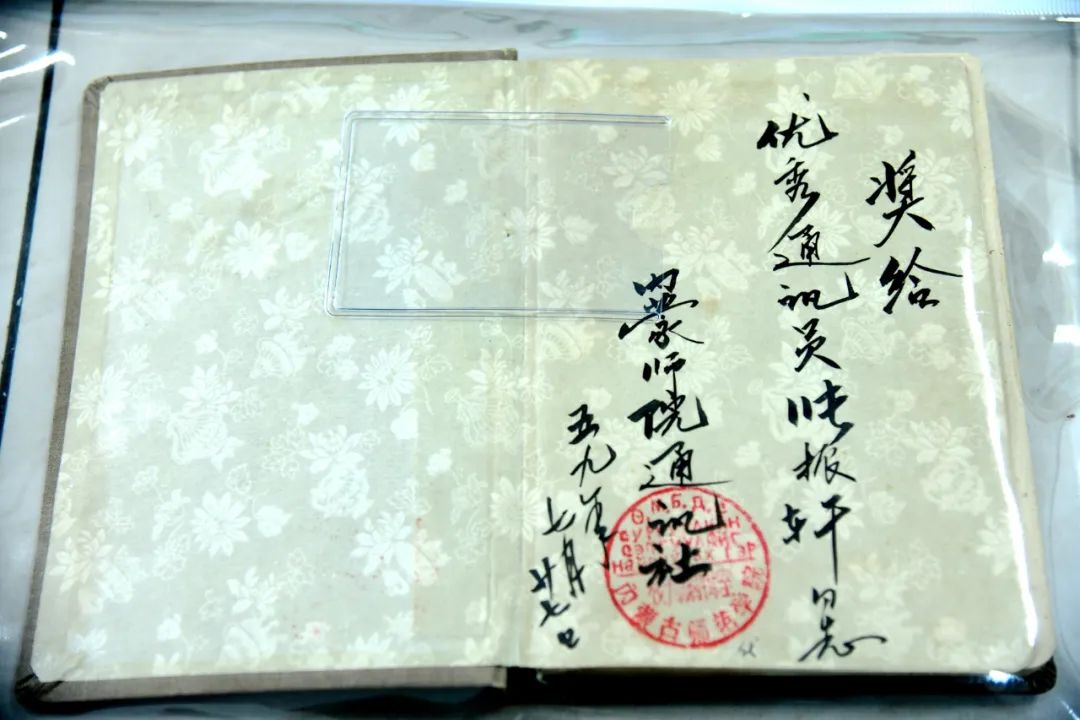 奖给
优秀通讯员张振轩同志
内蒙师院通讯社
五九年七月廿七日
Ө.М.Б.Д.
内蒙古师范学院